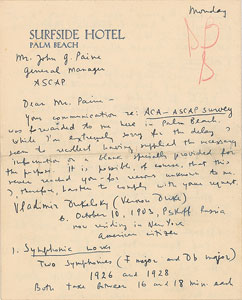 Monday
SURFSIDE HOTEL
PALM BEACH
Mr. John G. Paine
General Manager
ASCAP
Dear Mr. Paine –
Your communication re: ACA–ASCAP survey
was forwarded to me here in Palm Beach.
While I'm extremely sorry for the delay, I
seem to recollect having supplied the necessary
information on a blank specially provided for
the purpose. It is possible, of course, that this
never reached you – for reasons unknown to me.
I, therefore, hasten to comply with your request.
Vladimir Dukelsky (Vernon Duke)
b. October 10, 1903, Pskoff Russia
now residing in New York
American citizen
1. Symphonic works
Two Symphonies (F major and Db major)
1926 and 1928
Both take between 16 and 18 min. each